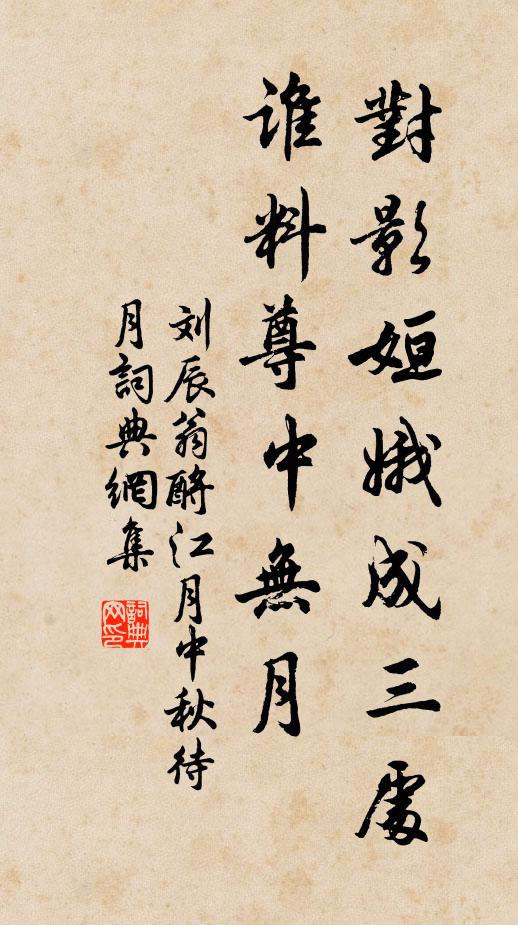 對影姮娥成三處
誰料尊中無月
刘辰翁酹江月中秋待
月詞典網集
詞典网印